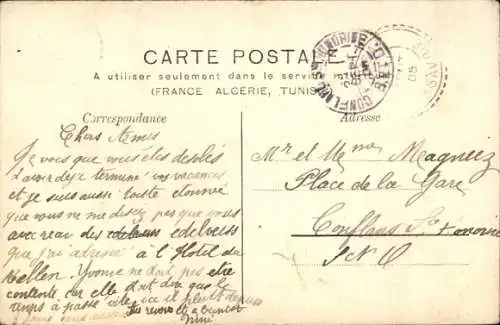 CARTE POSTALE
A utiliser seulement dans le service
(FRANCE ALGÉRIE, TUNIS
CONFLANS
05
Correspondance
Adresse
Chers Amis
Je vois que vous êtes desolés
d'avoir deja terminé vos vacances
et je suis aussi toute etonnée
que vous ne me disez pas que vous
avec reau des edelweiss edelweiss
que j'ai adressé à l'Hotel du
Yvonne ne doit pas etre
contente, car elle doit dire que le
temps a passé vite, ici il pleut
Au revoir et a bientot
Mr et Mme Magniez
Place de la Gare
Conflans Ste Honorine
S. & O